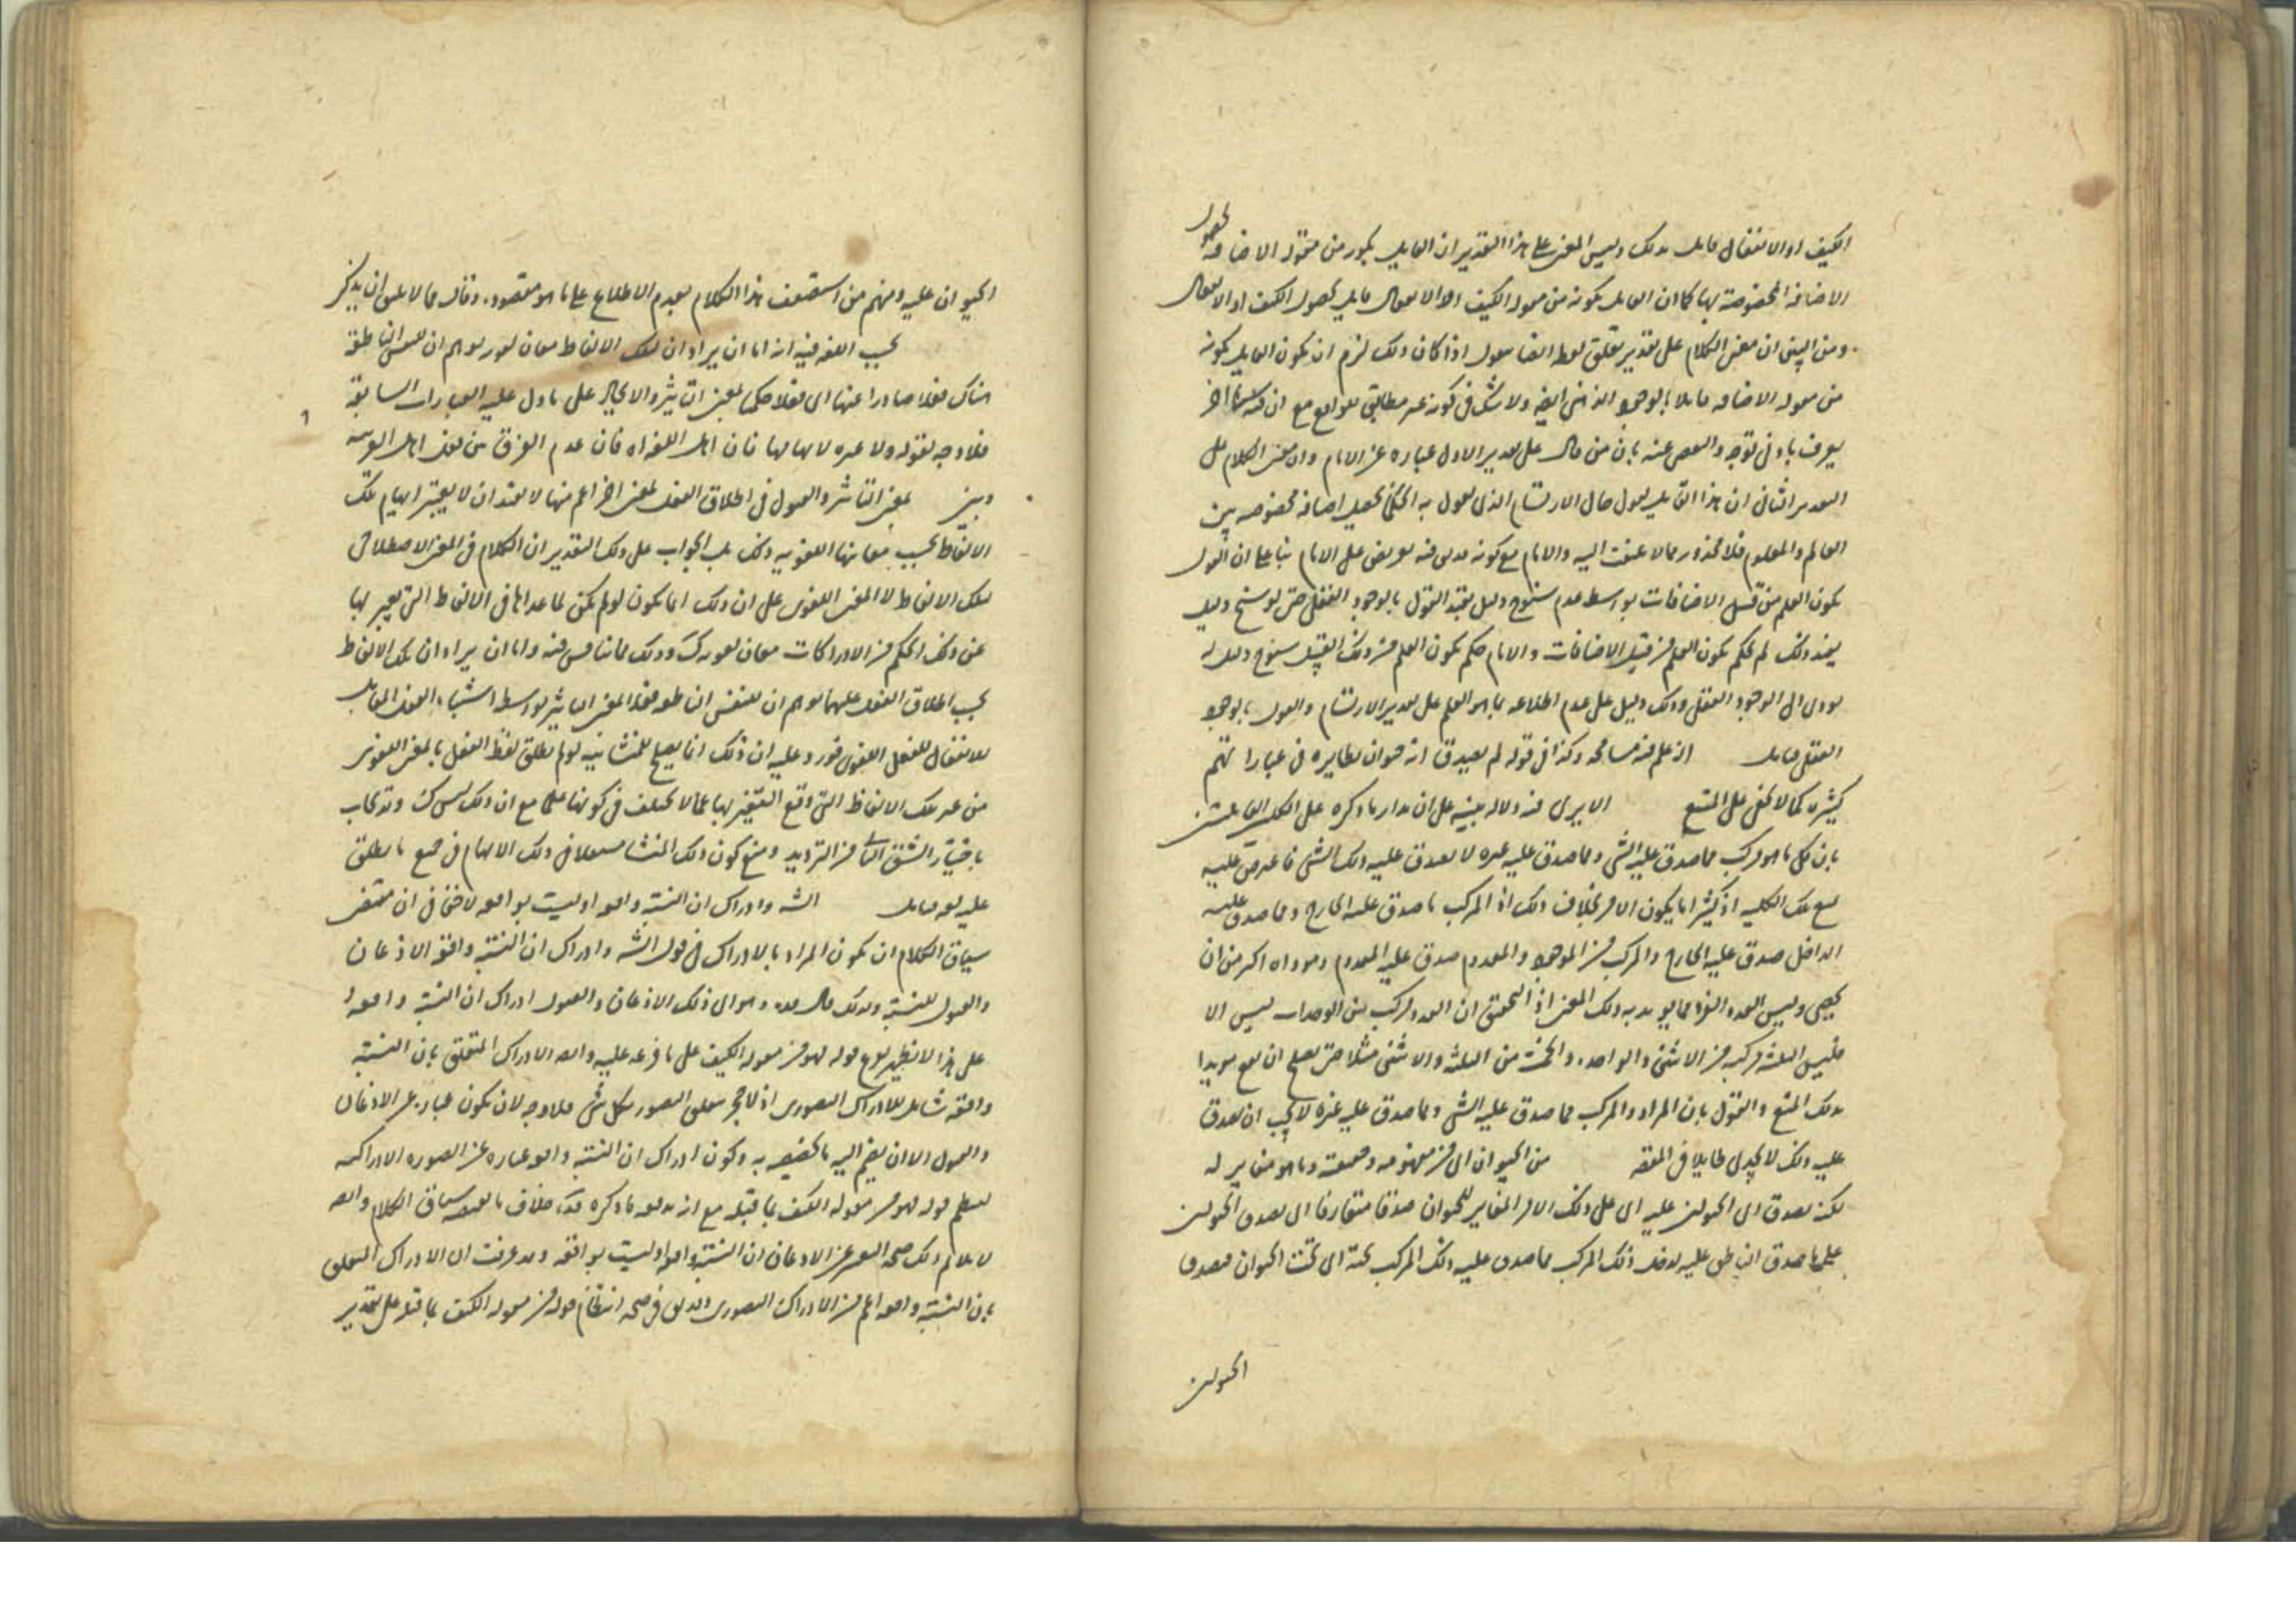 الكيف او الانفعال قابل بذلك وليس المعنى على هذا التقدير ان القايل بكونه من مقولة الاضافة بحصول
الاضافة المخصوصة بينهما كما ان القايل بكونه من مقولة الكيف او الانفعال قايل بحصول الكيف او الانفعال
ومن البين ان معنى الكلام على تقدير تعلق لفظ ايضا بقول اذا كان ذلك لزم ان يكون القايل بكونه
من مقولة الاضافة قايلا بالوجود الذهني ايضا ولا شك في كونه غير مطابق للواقع مع ان
يعرف بادنى توجه والتفصي عنه بان من قال على تقدير الاول عبارة عن الامام وان معنى الكلام على
التقدير الثاني ان هذا القايل يقول حال الارتسام الذي يقول به الحكماء يحصل اضافة مخصوصة بين
العالم والمعلوم فلا محذور مما لا يلتفت اليه والامام مع كونه بناء على ان القول
بكون العلم من قبيل الاضافات بواسطة عدم سنوح دليل يفيد القول بالوجود العقلي حتى لو سنح دليل
يفيد ذلك لم يحكم بكون العلم من قبيل الاضافات والامام حكم بكون العلم من ذلك القبيل سنوح دليل له
يودي الى الوجود العقلي وذلك دليل على عدم اطلاعه بما هو العلم على تقدير الارتسام والقول بالوجود
العقلي فتامل اذ علم فيه مسامحة وكذا في قوله لم يصدق انه حيوان نظايره في عباراتهم
كثيرة كما لا يخفى على المتتبع الا يرى فيه دلالة بينة على ان مدار ما ذكره على الكلية القايلة
بان كل ما هو مركب مما صدق عليه الشي ومما صدق عليه غيره لا يصدق عليه ذلك الشي فاعترض عليه
بمنع تلك الكلية اذ كثيرا ما يكون الامر بخلاف ذلك اذ المركب ما صدق عليه الخارج ومما صدق عليه
الداخل صدق عليه الخارج والمركب من الموجود والمعدوم صدق عليه المعدوم وموداه اكثر من ان
يحصى وليس العدد الفرد مما يويد به ذلك المعنى اذ التحقيق ان العدد مركب من الوحدات ليس الا
فليس الثلثة مركبة من الاثنين والواحد والخمسة من الثلثة والاثنين مثلا حتى يصلح ان يقع مويدا
لذلك المنع والقول بان المراد والمركب مما صدق عليه الشي ومما صدق عليه غيره لا يجب ان يصدق
عليه ذلك لا يجدي طايلا في المقصد من الحيوان اي من مفهومه وحقيقته وما هو مغاير له
لكنه يصدق اي الحيوان عليه اي على ذلك الامر المغاير للحيوان صدقا متعارفا اي يصدق الحيوان
على ما صدق الناطق عليه لدخل ذلك المركب مما صدق عليه ذلك المركب تحته اي تحت الحيوان فيصدق
الحيوان
الحيوان عليه ومنهم من استضعف هذا الكلام لعدم الاطلاع على ما هو مقصوده وقال ما لا يليق ان يذكر
بحسب اللغة فيه انه اما ان يراد ان لتلك الالفاظ معان لغوية يوهم ان للنفس الناطقة
هناك فعلا صادرا عنها اي فعلا حكميا بمعنى التاثير والايجاد على ما دل عليه العبارات السابقة
فلا وجه لقوله ولا عبرة لايهامها فان اهل اللغة اه فان عدم الفرق بين الفعل اهل العربية
وبين بمعنى التاثير والقبول في اطلاق الفعل بمعنى اخر اعم منها لا يفيد ان لا يعتبر ايهام تلك
الالفاظ بحسب معانيها اللغوية ذلك بل الجواب على ذلك التقدير ان الكلام في المعنى الاصطلاحي
لتلك الالفاظ لا المعنى اللغوي على ان ذلك انما يكون لو لم يكن لما عداها في الالفاظ التي يعبر بها
عن ذلك الحكم من الادراكات معان لغوية كذلك وذلك مما يناقش فيه واما ان يراد ان تلك الالفاظ
بحسب اطلاق الفعل عليها يوهم ان للنفس الناطقة فعلا بمعنى التاثير بواسطة اشتباه الفعل المقابل
للانفعال للفعل اللغوي فيرد عليه ان ذلك انما يصلح للمنشائية لو لم يطلق لفظ الفعل بالمعنى اللغوي
من غير تلك الالفاظ التي وقع التعبير بها مما لا يختلف في كونها علما مع ان ذلك ليس كذلك وقد يجاب
باختيار الشق الثاني من الترديد ومنع كون ذلك المنشا مستقلا في ذلك الايهام في جميع ما يطلق
عليه فتامل الشه وادراك ان النسبة واقعة او ليست بواقعة لا خفاء في ان مقتضى
سياق الكلام ان يكون المراد بالادراك في قول الشه وادراك ان النسبة واقعة الاذعان
والقبول للنسبة ولذلك قال بعده وهو اي ذلك الاذعان والقبول ادراك ان النسبة واقعة
على هذا لا يظهر تفرع قوله فهو من مقولة الكيف على ما فرعه عليه وايضا الادراك المتعلق بان النسبة
واقعة شامل للادراك التصوري اذ لا حجر يتعلق التصور بكل شي فلا وجه لان يكون عبارة عن الاذعان
والقبول الا ان يضم اليه ما يخصصه به وكون ادراك ان النسبة واقعة عبارة عن الصورة الادراكية
لينتظم قوله فهو من مقولة الكيف بما قبله مع انه خلاف ما يقتضيه سياق الكلام وايضا
لا يلايم ذلك صحة التعبير عن الاذعان ان النسبة واقعة او ليست بواقعة وقد عرفت ان الادراك المتعلق
بان النسبة واقعة اعم من الادراك التصوري في صحة انتظام قوله من مقولة الكيف بما قبله على تقدير